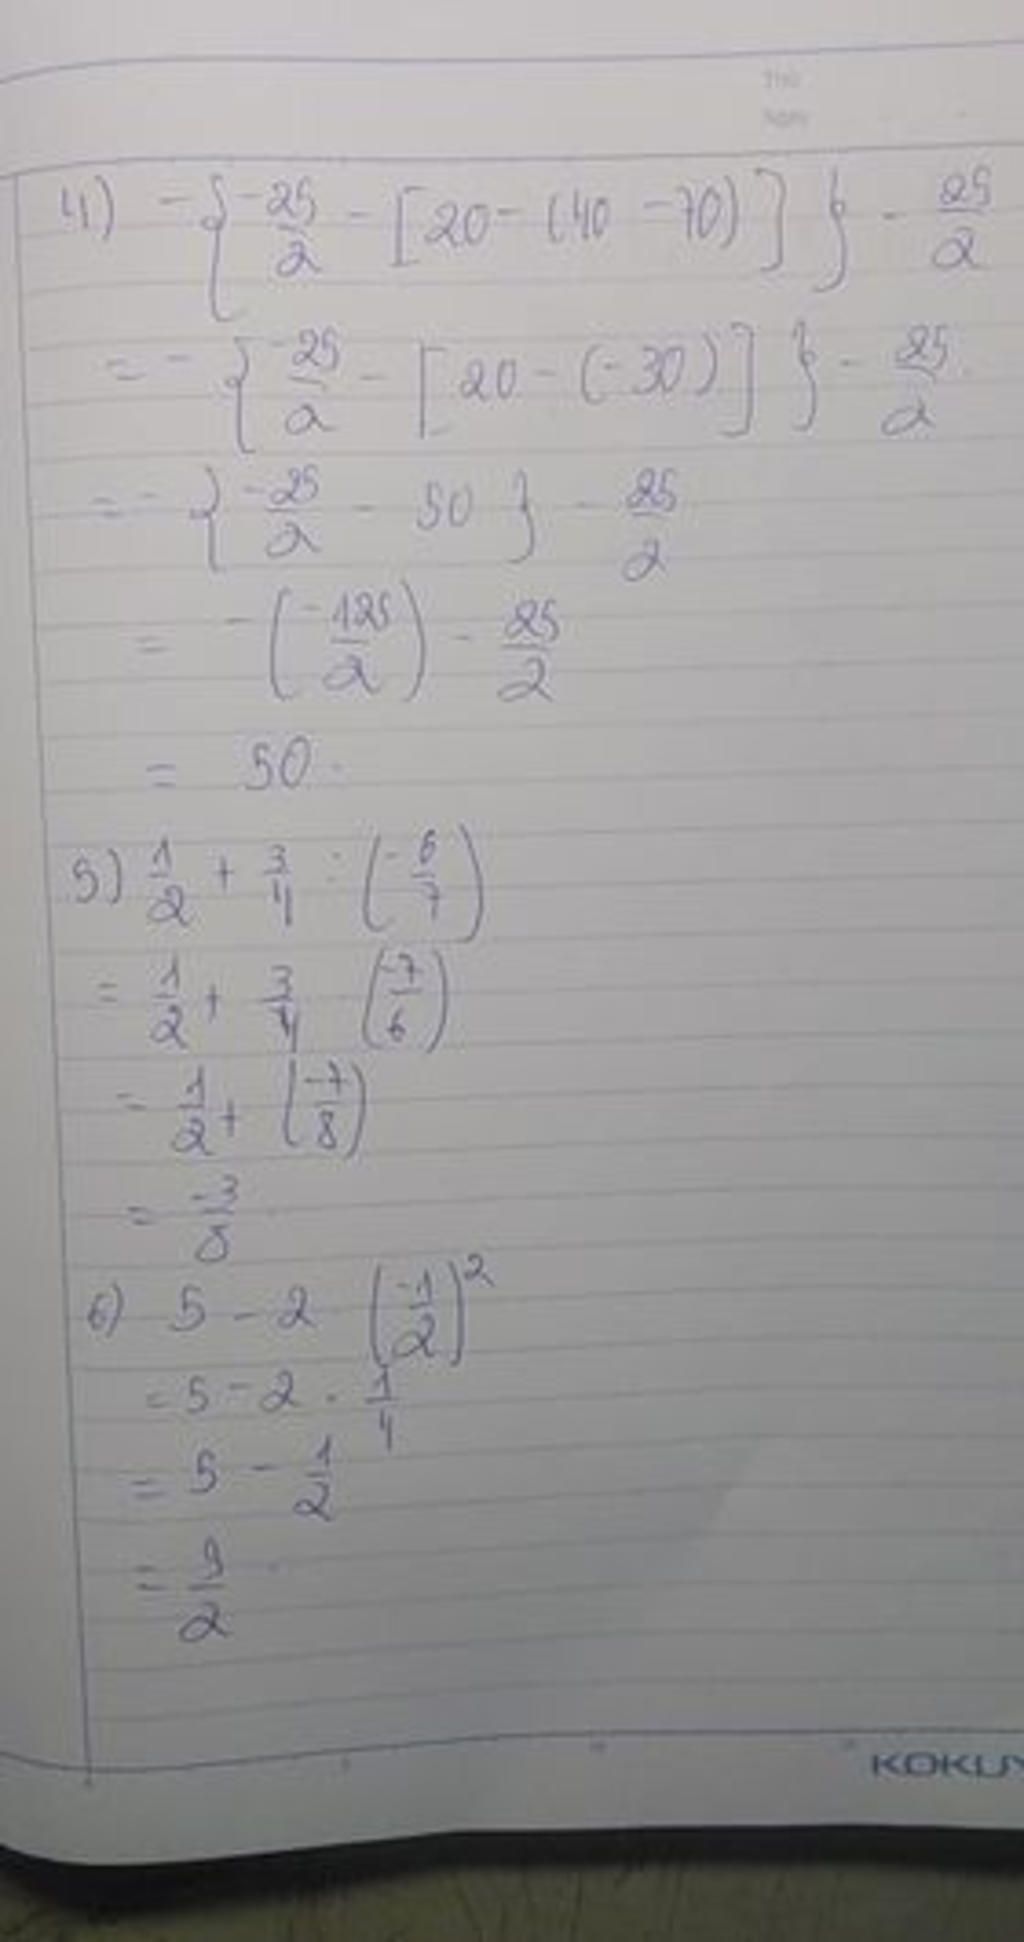 Thứ
Ngày
4) -{-25/2 - [20 - (40 - 70)]} - 25/2
= -{-25/2 - [20 - (-30)]} - 25/2
= -{-25/2 - 50} - 25/2
= -(-125/2) - 25/2
= 50.
5) 1/2 + 3/4 : (-6/7)
= 1/2 + 3/4 (-7/6)
= 1/2 + (-7/8)
= -3/8
6) 5 - 2 (-1/2)²
= 5 - 2 . 1/4
= 5 - 1/2
= 9/2
KOKUY